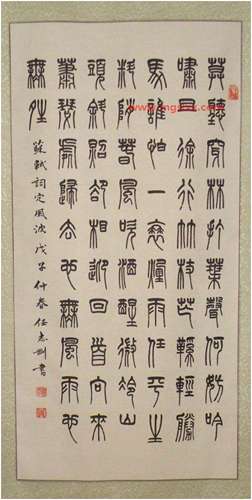 莫聽穿林打葉聲何妨吟
嘯且徐行竹杖芒鞋輕勝
馬誰怕一蓑煙雨任平生
料峭春風吹酒醒微冷山
頭斜照卻相迎回首向來
蕭瑟處歸去也無風雨也
無晴
蘇軾詞定風波 戊子仲春任志刚書